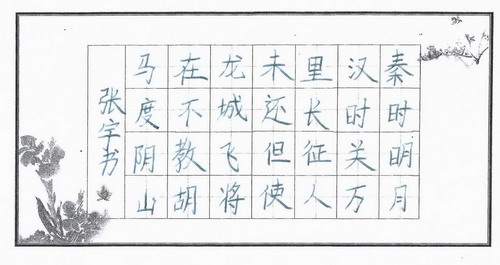 秦时明月
汉时关万
里长征人
未还但使
龙城飞将
在不教胡
马度阴山
张宇书